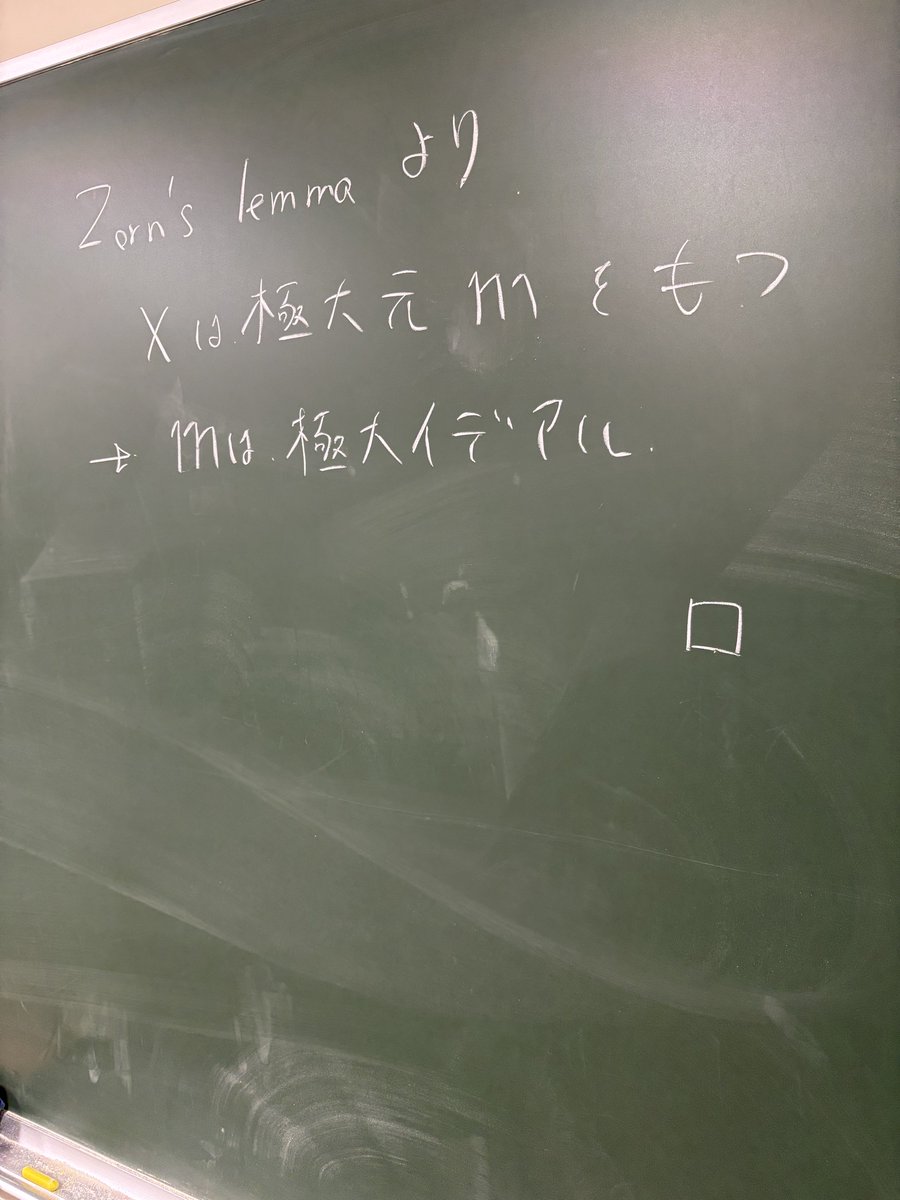 Zorn's lemma より
Xは極大元 m をもつ
→ mは極大イデアル.
□